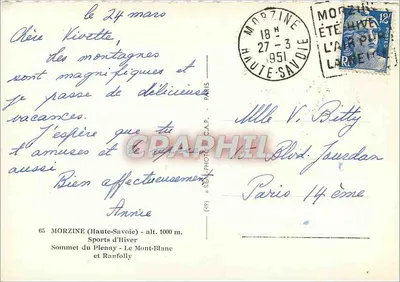 le 24 mars
Chère Vivette,
Les montagnes
sont magnifiques et
je passe de délicieuses
vacances.
J'espère que tu
t'amuses et te
aussi
Bien affectueusement
Annie
65 MORZINE (Haute-Savoie) - alt. 1000 m.
Sports d'Hiver
Sommet du Plenay - Le Mont-Blanc
et Ranfolly
"REAL-PHOTO" C.A.P. PARIS
MORZINE
18 H
27 - 3
1951
HAUTE-SAVOIE
MORZINE
ÉTÉ HIVER
L'AIR
LA
12F
Mlle V. Bitty
15 Blvd. Jourdan
Paris 14ème
CPAPHIL